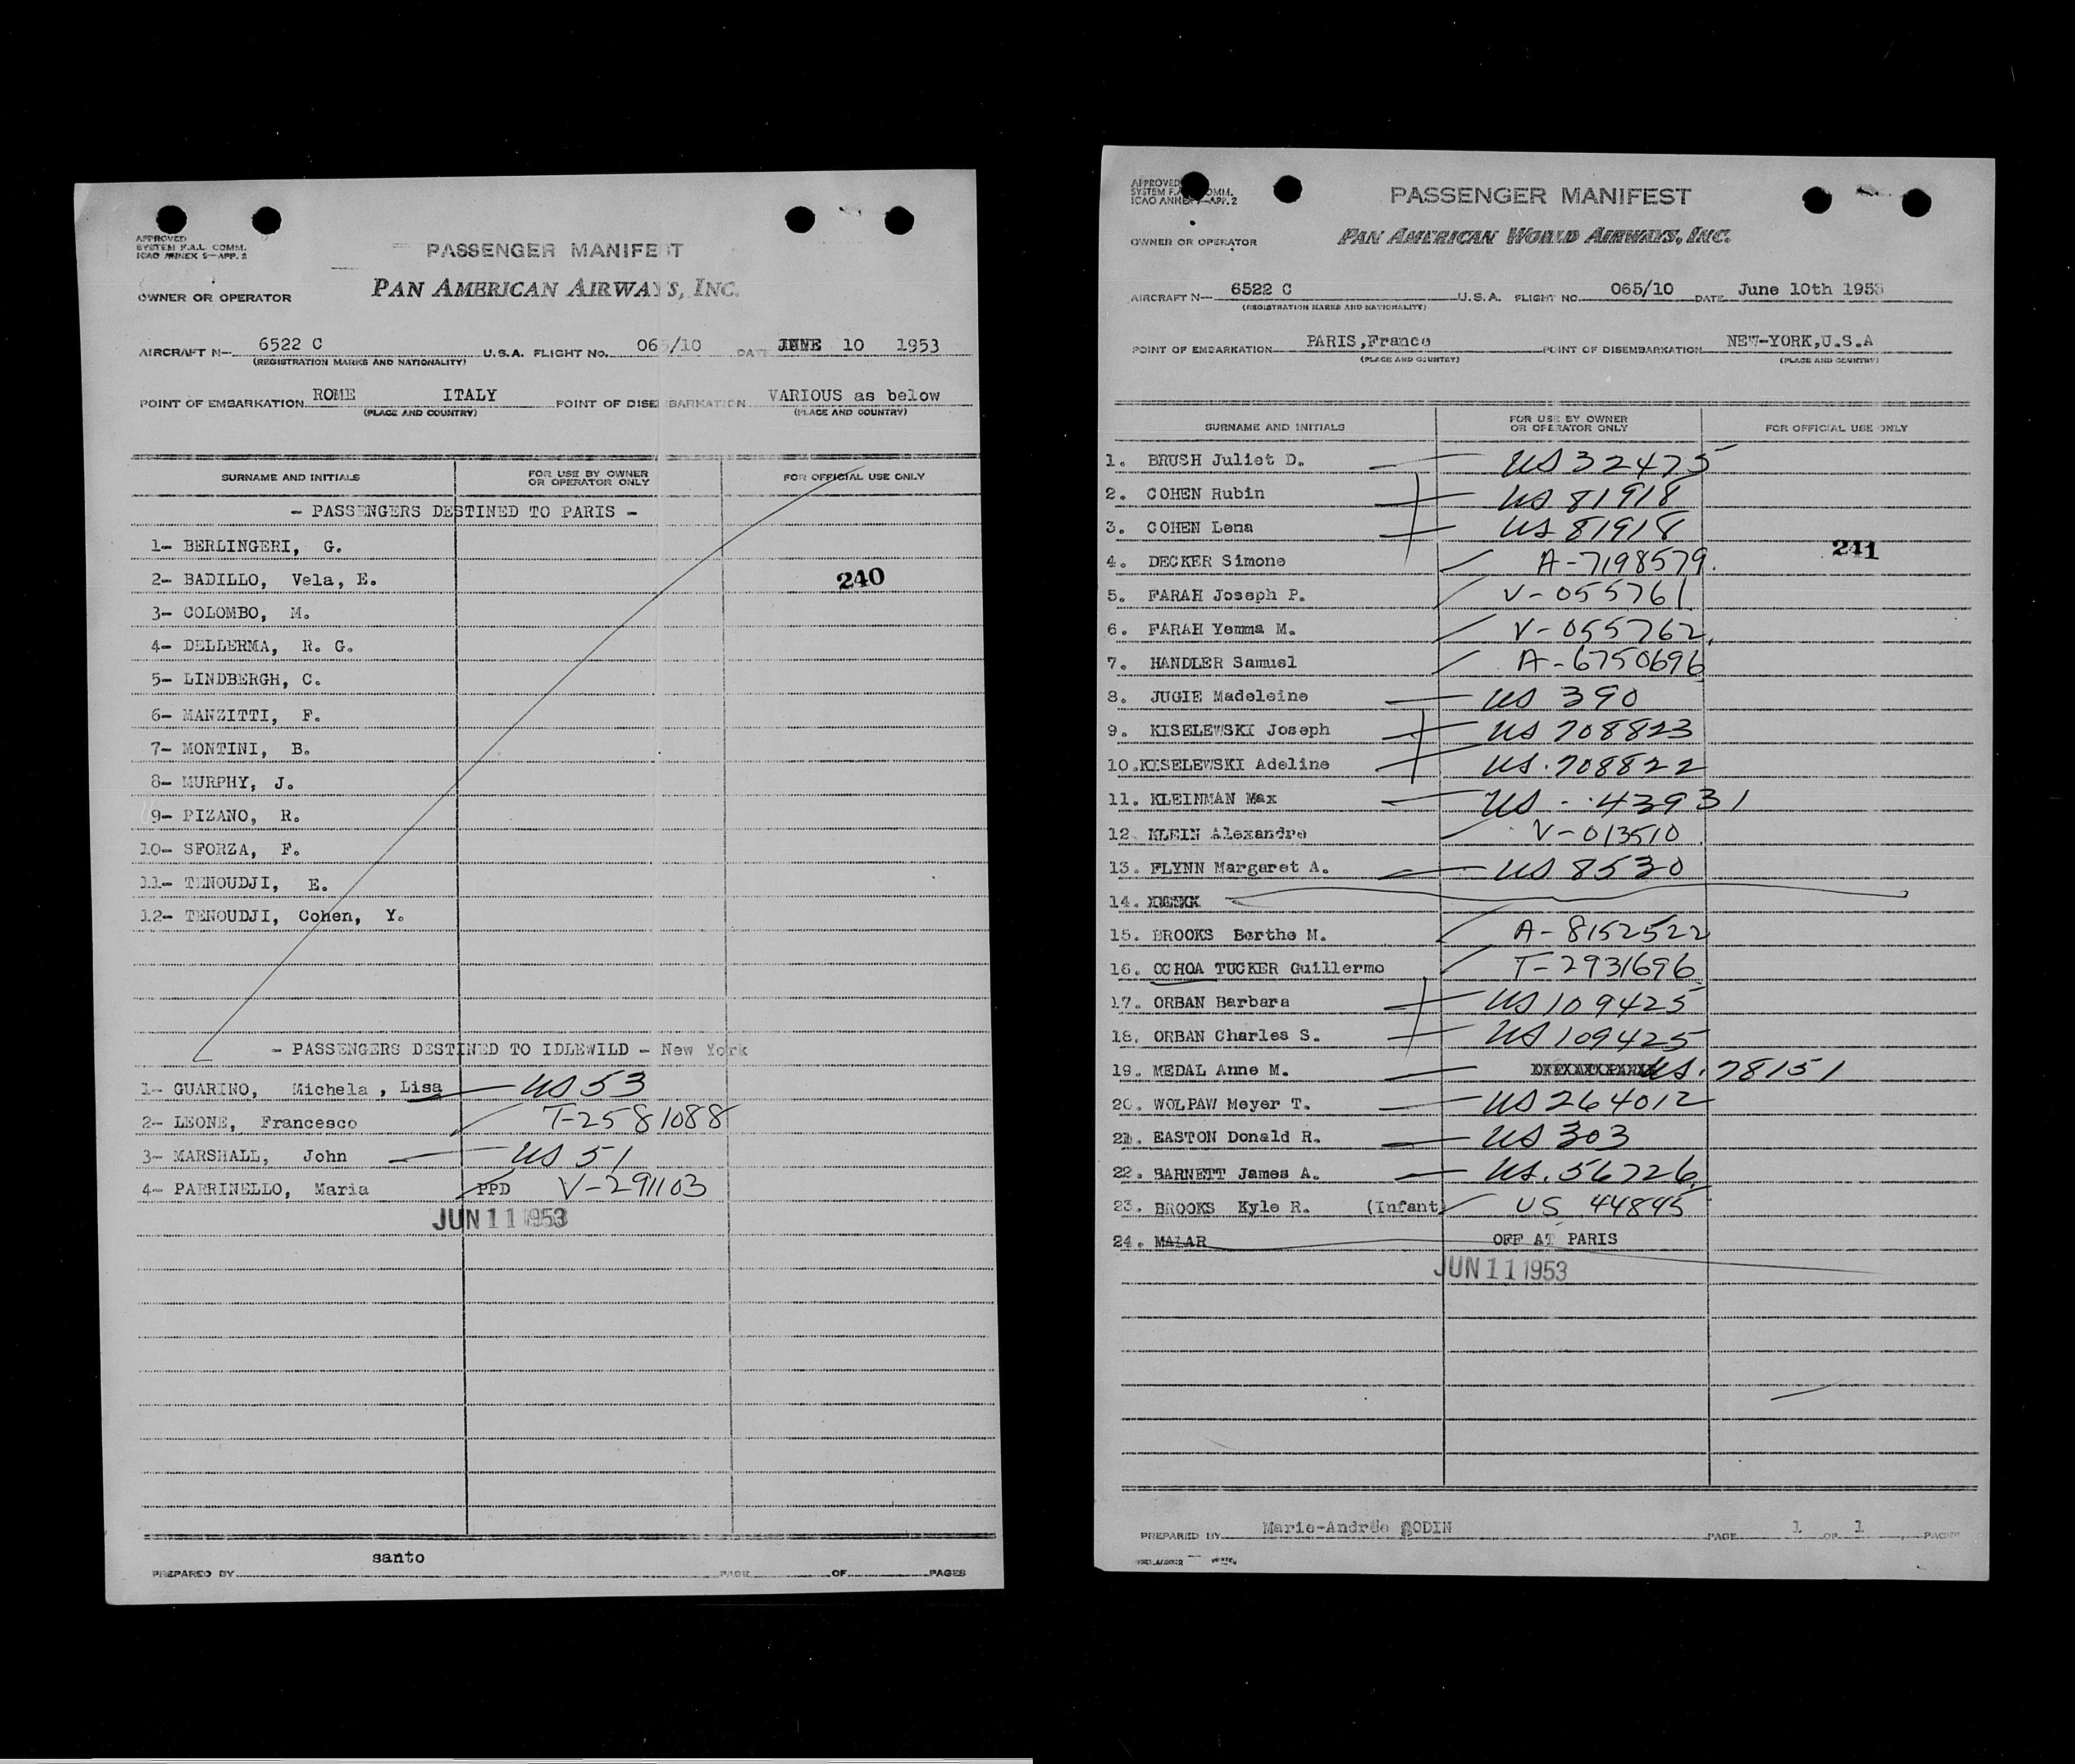 APPROVED
SYSTEM F.A.L. COMM.
ICAO ANNEX 9—APP. 2
PASSENGER MANIFEST
OWNER OR OPERATOR PAN AMERICAN AIRWAYS, INC.
AIRCRAFT N— 6522 C U.S.A. FLIGHT NO. 065/10 DATE JUNE 10 1953
(REGISTRATION MARKS AND NATIONALITY)
POINT OF EMBARKATION ROME ITALY POINT OF DISEMBARKATION VARIOUS as below
(PLACE AND COUNTRY) (PLACE AND COUNTRY)
SURNAME AND INITIALS FOR USE BY OWNER OR OPERATOR ONLY FOR OFFICIAL USE ONLY
- PASSENGERS DESTINED TO PARIS -
1- BERLINGERI, G.
2- BADILLO, Vela, E. 240
3- COLOMBO, M.
4- DELLERMA, R. G.
5- LINDBERGH, C.
6- MANZITTI, F.
7- MONTINI, B.
8- MURPHY, J.
9- PIZANO, R.
10- SFORZA, F.
11- TENOUDJI, E.
12- TENOUDJI, Cohen, Y.
- PASSENGERS DESTINED TO IDLEWILD - New York
1- GUARINO, Michela , Lisa US 53
2- LEONE, Francesco T-2581088
3- MARSHALL, John US 51
4- PARRINELLO, Maria PPD V-291103
JUN 11 1953
santo
PREPARED BY PAGE OF PAGES
APPROVED
SYSTEM F.A.L. COMM.
ICAO ANNEX 9—APP. 2
PASSENGER MANIFEST
OWNER OR OPERATOR PAN AMERICAN WORLD AIRWAYS, INC.
AIRCRAFT N— 6522 C U.S.A. FLIGHT NO. 065/10 DATE June 10th 1953
(REGISTRATION MARKS AND NATIONALITY)
POINT OF EMBARKATION PARIS,France POINT OF DISEMBARKATION NEW-YORK,U.S.A
(PLACE AND COUNTRY) (PLACE AND COUNTRY)
SURNAME AND INITIALS FOR USE BY OWNER OR OPERATOR ONLY FOR OFFICIAL USE ONLY
1. BRUSH Juliet D. US 32475
2. COHEN Rubin US 81918
3. COHEN Lena US 81918
241
4. DECKER Simone A-7198579.
5. FARAH Joseph P. V-055761
6. FARAH Yemma M. V-055762.
7. HANDLER Samuel A-6750696
8. JUGIE Madeleine US 390
9. KISELEWSKI Joseph US 708823
10.KISELEWSKI Adeline US.708822
11. KLEINMAN Max US - .43931
12. KLEIN Alexandre V-013510
13. FLYNN Margaret A. US 8530
14.
15. BROOKS Berthe M. A-8152522
16. OCHOA TUCKER Guillermo T-2931696
17. ORBAN Barbara US 109425
18. ORBAN Charles S. US 109425
19. MEDAL Anne M. US.78151
20. WOLPAW Meyer T. US 264012
21. EASTON Donald R. US 303
22. BARNETT James A. US.56726
23. BROOKS Kyle R. (Infant) US 44845
24. MALAR OFF AT PARIS
JUN 11 1953
PREPARED BY Marie-Andrée GODIN PAGE 1 OF 1 PAGES